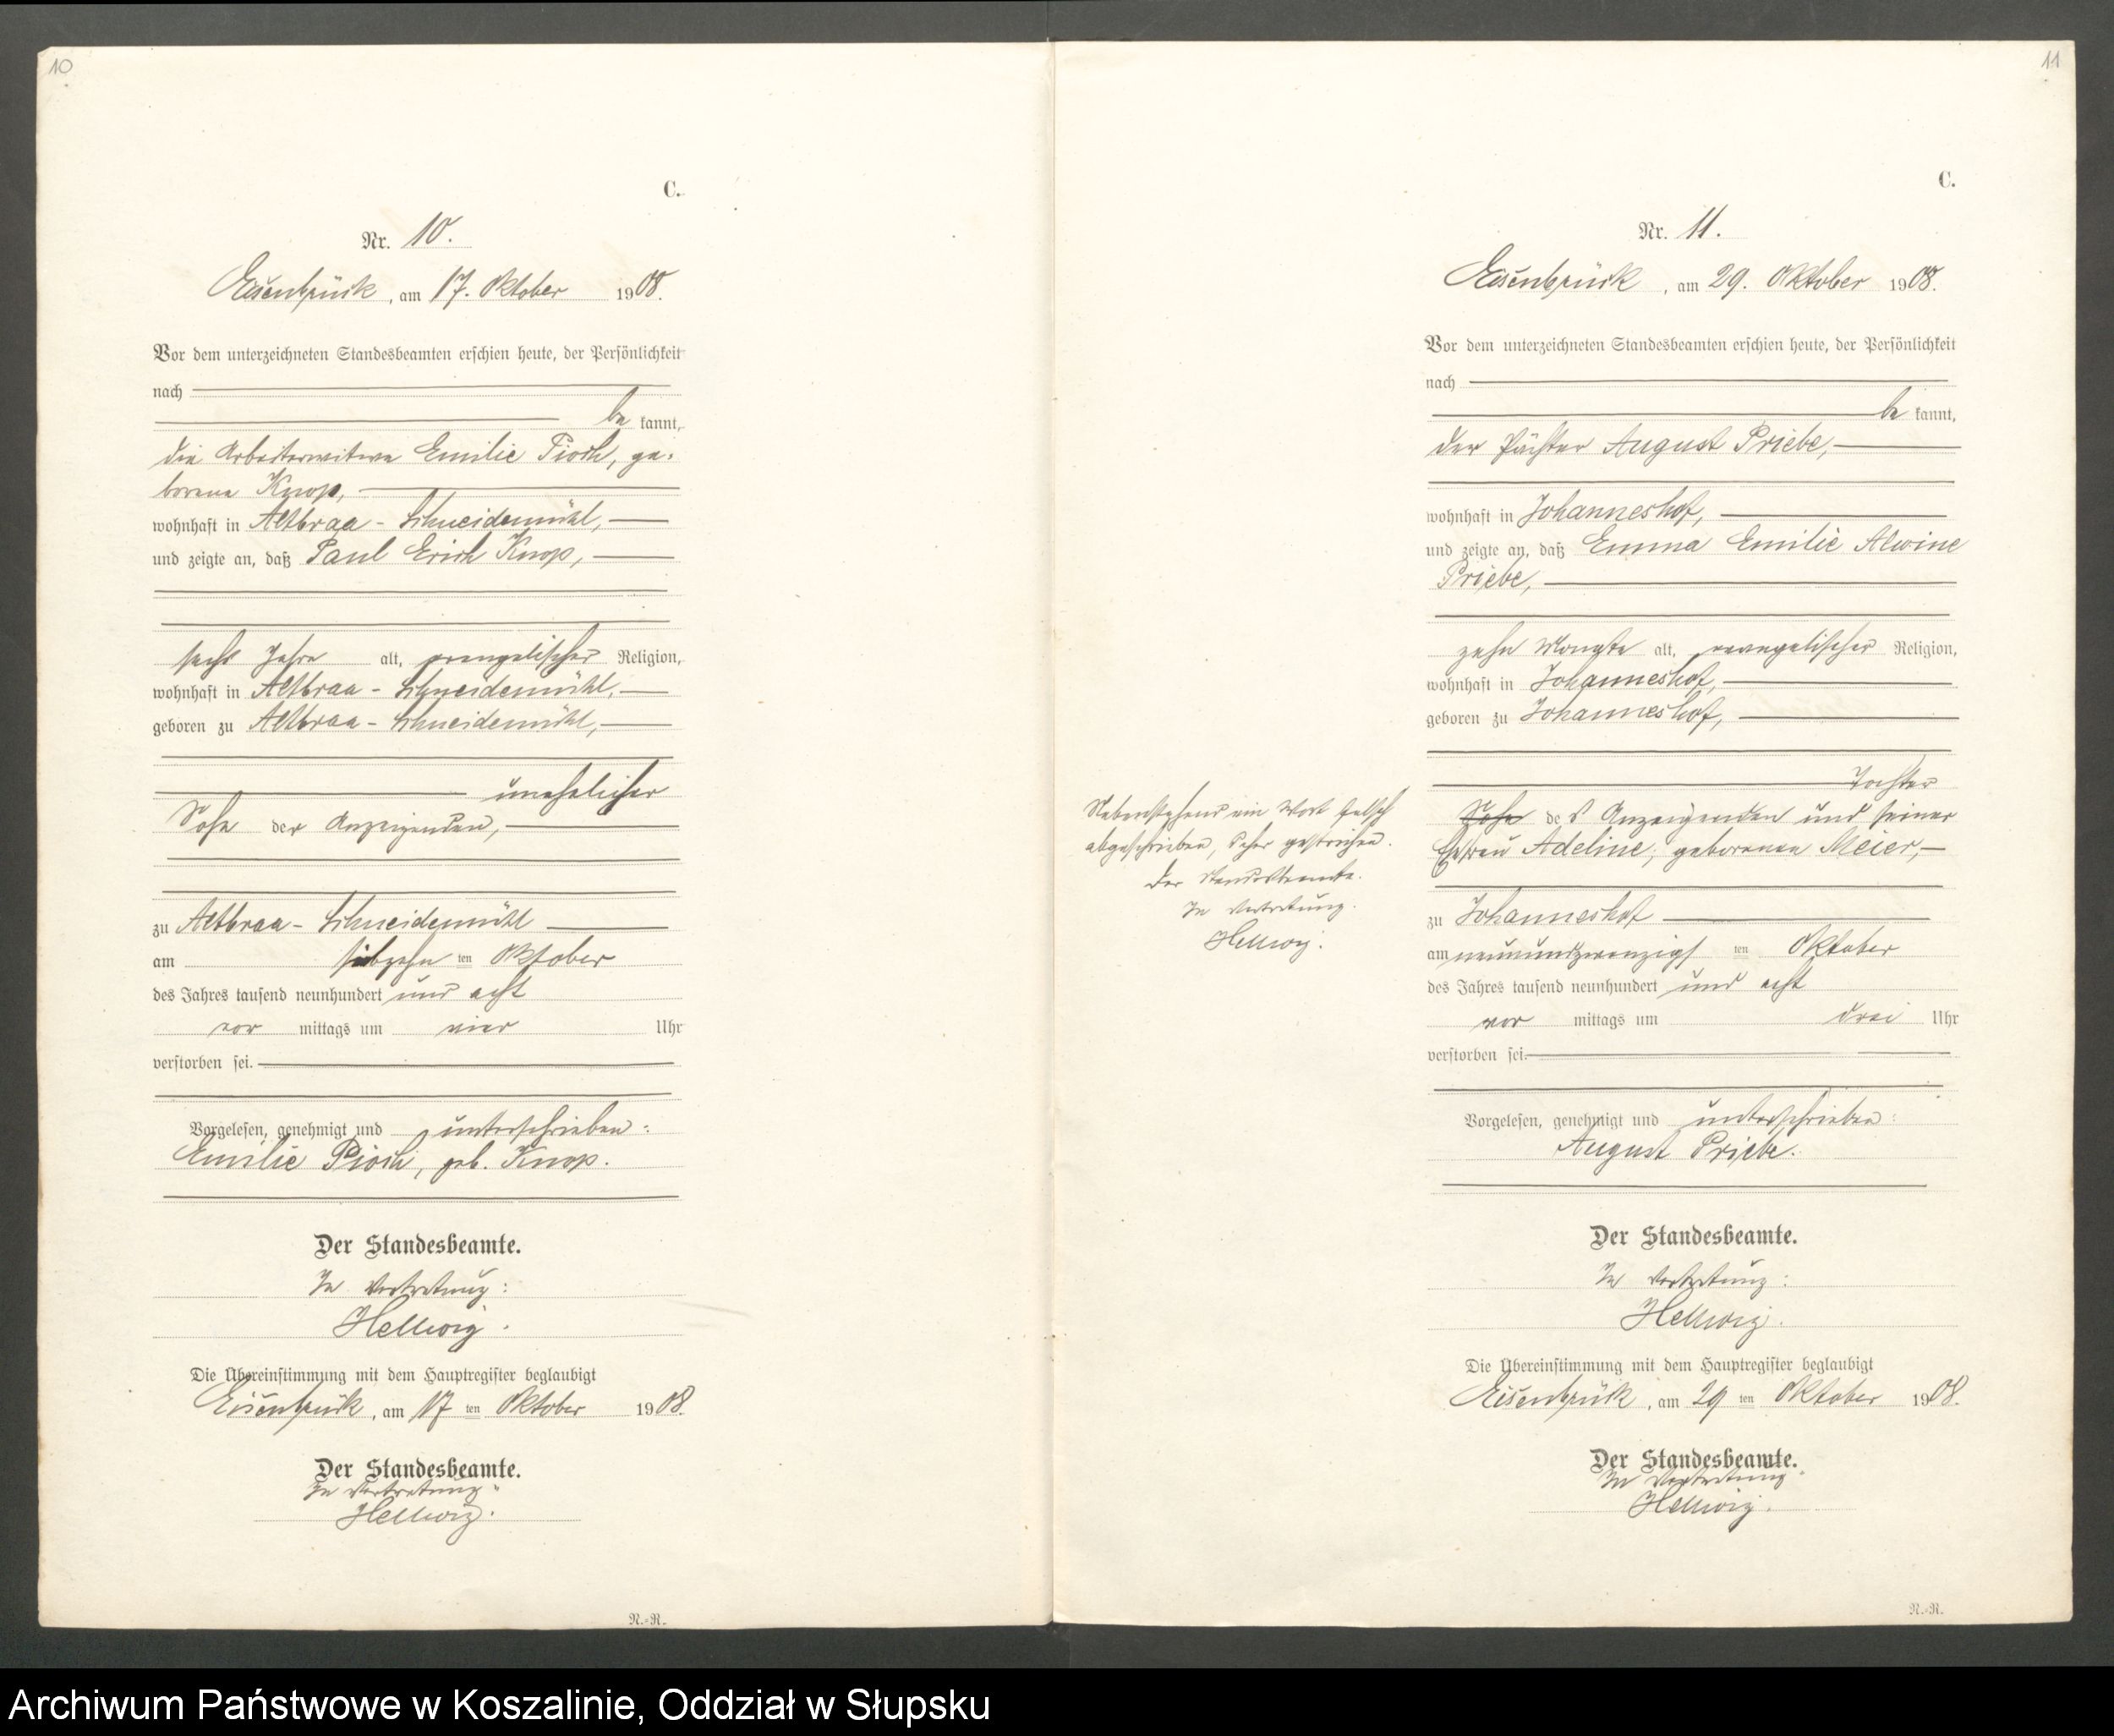 10
C.
Nr. 10.
Eisenbrück, am 17. Oktober 1908.
Vor dem unterzeichneten Standesbeamten erschien heute, der Persönlichkeit
nach
be kannt,
die Arbeiterwitwe Emilie Piosch, ge-
borene Knop,
wohnhaft in Altbraa-Schneidemühl,
und zeigte an, daß Paul Erich Knop,
sechs Jahre alt, evangelischer Religion,
wohnhaft in Altbraa-Schneidemühl,
geboren zu Altbraa-Schneidemühl,
unehelicher
Sohn der Anzeigenden,
zu Altbraa-Schneidemühl
am siebzehn ten Oktober
des Jahres tausend neunhundert und acht
vor mittags um vier Uhr
verstorben sei.
Vorgelesen, genehmigt und unterschrieben:
Emilie Piosch, geb. Knop.
Der Standesbeamte.
In Vertretung:
Hellwig.
Die Übereinstimmung mit dem Hauptregister beglaubigt
Eisenbrück, am 17 ten Oktober 1908.
Der Standesbeamte.
In Vertretung:
Hellwig.
N.-R.
11
C.
Nr. 11.
Eisenbrück, am 29. Oktober 1908.
Vor dem unterzeichneten Standesbeamten erschien heute, der Persönlichkeit
nach
be kannt,
der Pächter August Priebe,
wohnhaft in Johanneshof,
und zeigte an, daß Emma Emilie Alwine
Priebe,
zehn Monate alt, evangelischer Religion,
wohnhaft in Johanneshof,
geboren zu Johanneshof,
Tochter
Sohn des Anzeigenden und seiner
Ehefrau Adeline, geborenen Meier,
zu Johanneshof
am neunundzwanzigs ten Oktober
des Jahres tausend neunhundert und acht
vor mittags um drei Uhr
verstorben sei.
Vorgelesen, genehmigt und unterschrieben:
August Priebe.
Der Standesbeamte.
In Vertretung:
Hellwig.
Die Übereinstimmung mit dem Hauptregister beglaubigt
Eisenbrück, am 29 ten Oktober 1908.
Der Standesbeamte.
In Vertretung:
Hellwig.
N.-R.
Nebenstehend ein Wort falsch
abgeschrieben, daher gestrichen.
Der Standesbeamte.
In Vertretung.
Hellwig.
Archiwum Państwowe w Koszalinie, Oddział w Słupsku